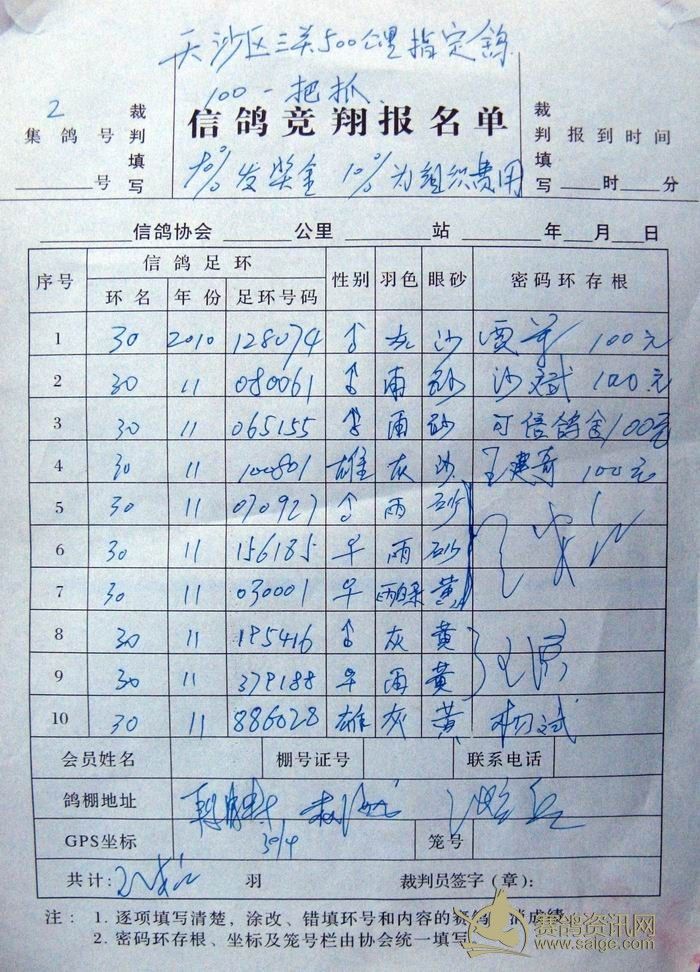 天沙区三关500公里指定鸽
100一把抓
2
集鸽号
____号
裁判填写
信鸽竞翔报名单
裁判填写
报到时间
___时___分
90% 发奖金 10% 为组织费用
________信鸽协会 ______公里 _______站 ______年____月___日
序号 信鸽足环 性别 羽色 眼砂 密码环存根
环名 年份 足环号码
1 30 2010 128074 ♂ 灰 沙 贾 100元
2 30 11 080061 ♂ 雨 砂 沙斌 100元
3 30 11 065155 雨 砂 可信鸽舍100元
4 30 11 100801 雄 灰 沙 王建奇 100元
5 30 11 070927 ♂ 雨 砂
6 30 11 156185 ♀ 雨 砂
7 30 11 030001 ♀ 黄
8 30 11 195416 ♂ 灰 黄
9 30 11 379188 ♀ 雨 黄
10 30 11 886028 雄 灰 黄 杨斌
会员姓名 棚号证号 联系电话
鸽棚地址
GPS坐标 笼号
共计: 羽 裁判员签字（章）:
注： 1. 逐项填写清楚，涂改、错填环号和内容的赛鸽 消成绩
2. 密码环存根、坐标及笼号栏由协会统一填写
赛鸽资讯网
www.saige.com